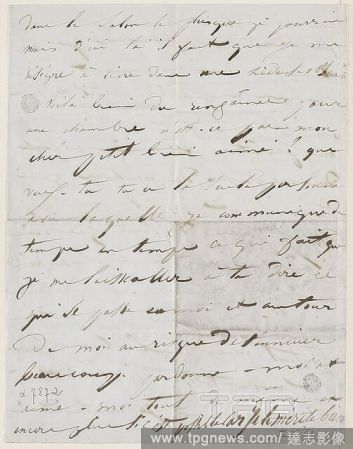 dans le salon le plus que je pourrai
mais d'ici là il faut que je me
résigne à vivre dans une
Voilà bien du pour
une chambre n'est-ce pas mon
cher petit bien aimé ? que
veux-tu tu es la seule personne
à la quelle je communique de
temps en temps ce qui fait que
je me laisse aller à te dire ce
qui se passe en moi et autour
de moi au risque de t'ennuier
beaucoup. pardonne-moi et
aime-moi tout de même
encore plus
α 7872
www.tpgnews.com / 達志影像